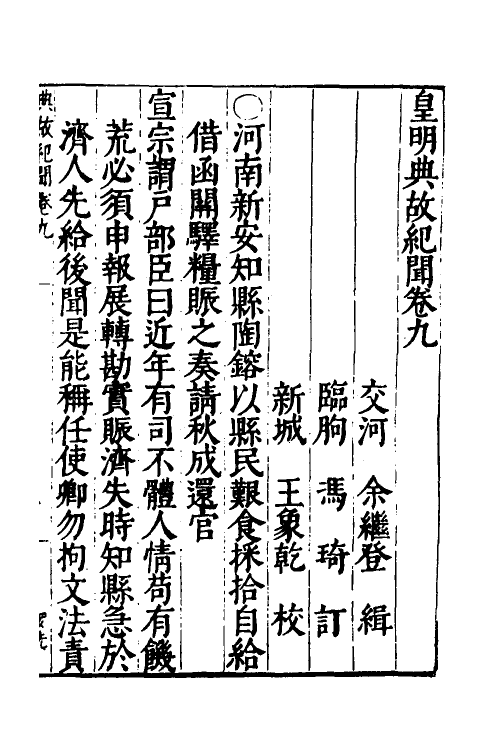 皇明典故紀聞卷九
交河　余繼登　緝
臨朐　馮　琦　訂
新城　王象乾　校
○河南新安知縣陶鎔以縣民艱食採拾自給
借函關驛糧賑之奏請秋成還官
宣宗謂戶部臣曰近年有司不體人情苟有饑
荒必須申報展轉勘實賑濟失時知縣急於
濟人先給後聞是能稱任使卿勿拘文法責
典故紀聞卷九